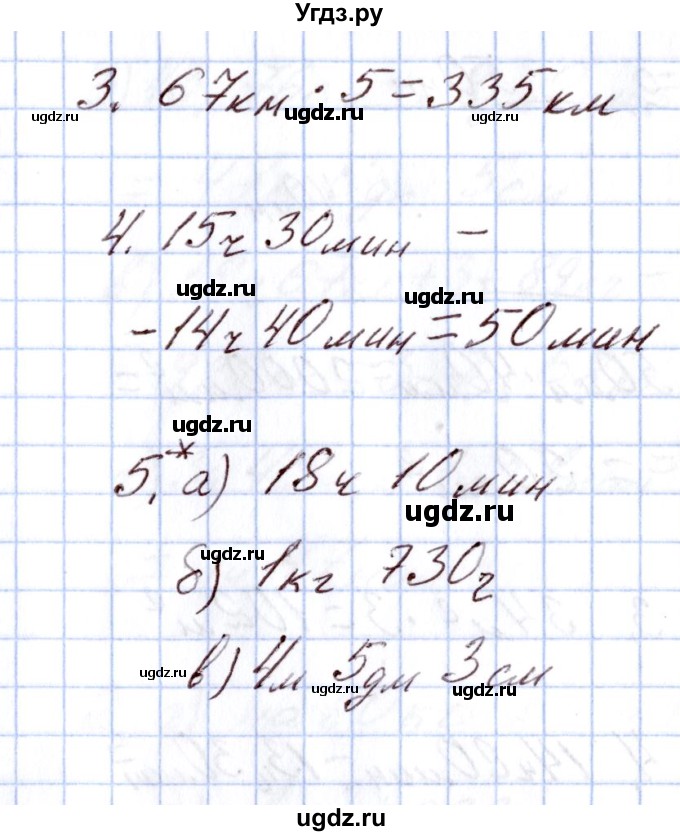 Угдз.ру
3. 67км · 5 = 335км
ugdz.ru ugdz.ru ugdz.ru
4. 15ч 30мин –
ugdz.ru ugdz.ru
- 14ч 40мин = 50мин
ugdz.ru
5.* а) 18ч 10мин
ugdz.ru
ugdz.ru
б) 1кг 730г
в) 4м 5дм 3см
ugdz.ru ugdz.ru ugdz.ru
ugdz.ru